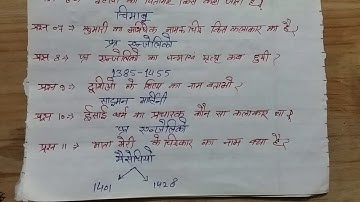 चिमाबु
प्रश्न ०७ → कुमारी का अभिषेक नामक चित्र किस कलाकार का है?
फ्रा एन्जेलिको
प्रश्न ८ → फ्रा एन्जेलिको का जन्म मृत्यु कब हुयी?
1385-1455
प्रश्न 9 → दूशीओ के शिष्य का नाम बताओ?
साइमन मार्तिनी
प्रश्न 10 → ईसाई धर्म का प्रचारक कौन सा कलाकार था?
फ्रा एन्जेलिको
प्रश्न 11 → माता मैरी के चित्रकार का नाम क्या है?
मैसेचियो
1401 1428